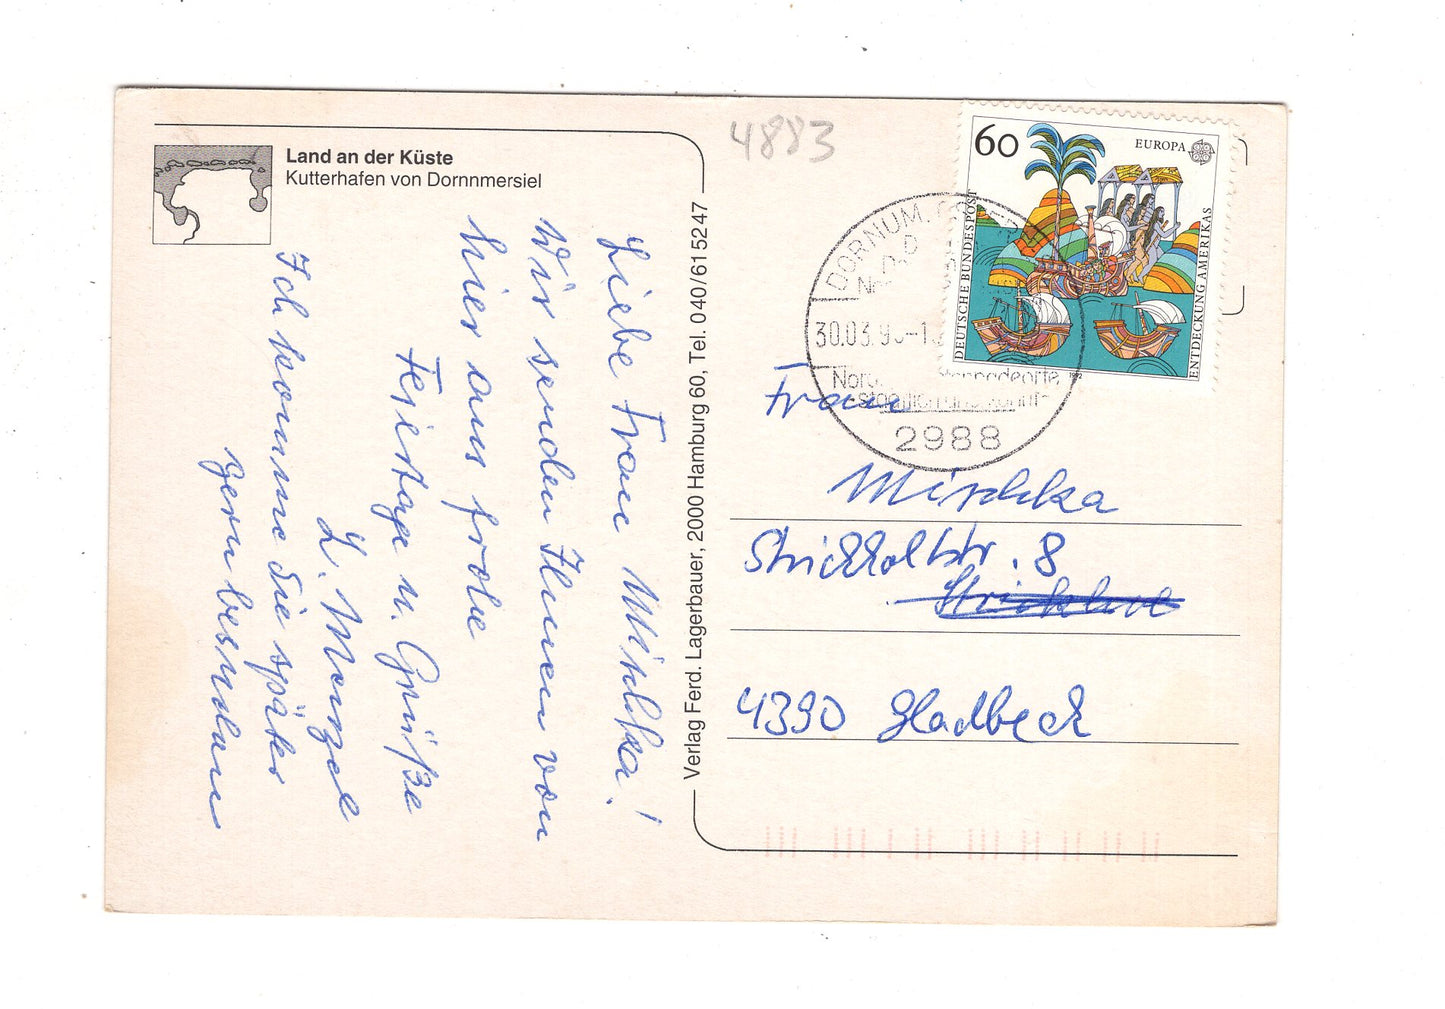 4883
Land an der Küste
Kutterhafen von Dornnmersiel
Liebe Frau Mischka!
Wir senden Ihnen von
hier aus frohe
Feiertage u. Grüße
L. Menzel
Ich komme Sie später
gern besuchen
Verlag Ferd. Lagerbauer, 2000 Hamburg 60, Tel. 040/615247
60
EUROPA
DEUTSCHE BUNDESPOST
ENTDECKUNG AMERIKAS
1992
DORNUM
30.03.9
2988
Frau
Mischka
4390 Gladbeck